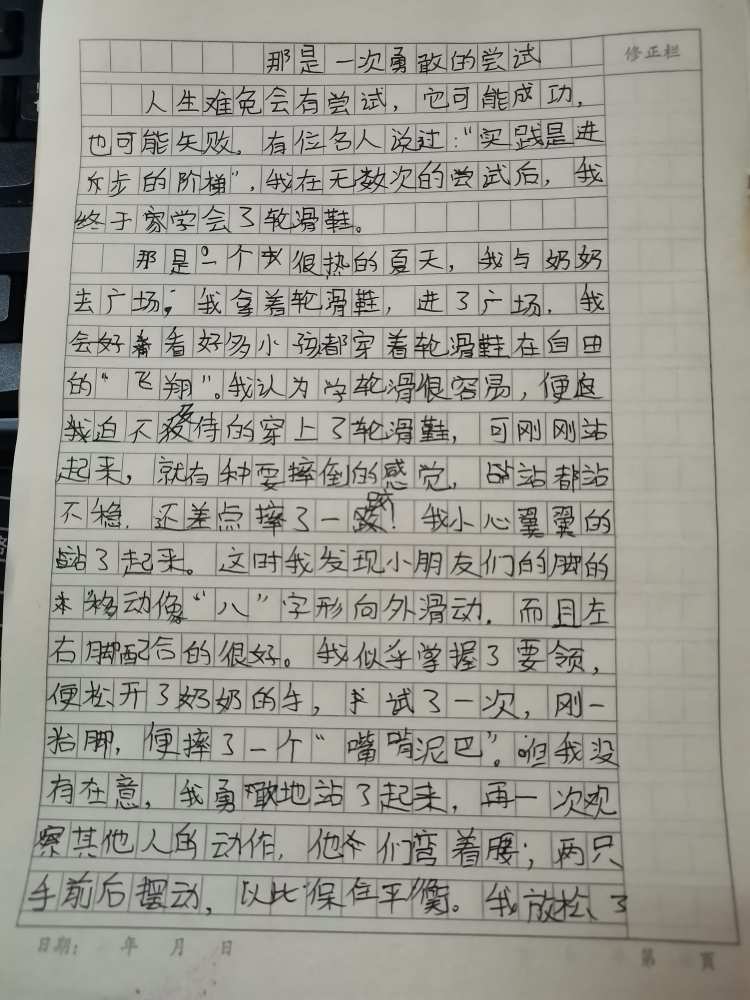 那是一次勇敢的尝试
修正栏
人生难免会有尝试，它可能成功，
也可能失败。有位名人说过："实践是进
步的阶梯"，我在无数次的尝试后，我
终于学会了轮滑鞋。
那是一个很热的夏天，我与奶奶
去广场，我拿着轮滑鞋，进了广场，我
看好多小孩都穿着轮滑鞋在自由
的"飞翔"。我认为学轮滑很容易，便
迫不及待的穿上了轮滑鞋，可刚刚站
起来，就有种要摔倒的感觉，站都站
不稳，还差点摔了一跤！我小心翼翼的
站了起来。这时我发现小朋友们的脚的
移动像"八"字形向外滑动，而且左
右脚配合的很好。我似乎掌握了要领，
便松开了奶奶的手，试了一次，刚一
抬脚，便摔了一个"嘴啃泥巴"。但我没
有在意，我勇敢地站了起来，再一次观
察其他人的动作，他们弯着腰；两只
手前后摆动，以此保住平衡。我放松了
日期： 年 月 日 第 页